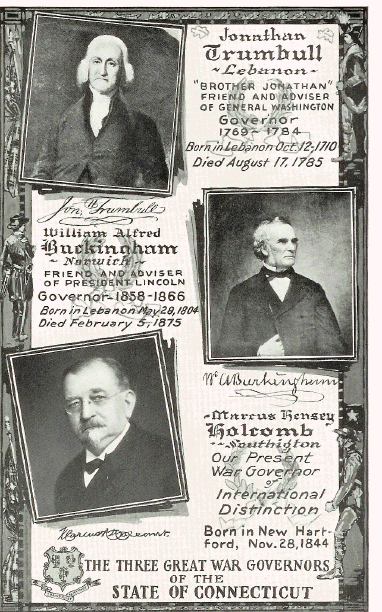 Jonathan
Trumbull
- Lebanon -
"BROTHER JONATHAN"
FRIEND AND ADVISER
OF GENERAL WASHINGTON
Governor
1769 - 1784
Born in Lebanon Oct. 12, 1710
Died August 17, 1785
Jon; Trumbull
William Alfred
Buckingham
~ Norwich ~
FRIEND AND ADVISER
OF PRESIDENT LINCOLN
Governor - 1858-1866
Born in Lebanon Nov 28, 1804
Died February 5, 1875
Wm A Buckingham
-Marcus Hensey
Holcomb
Southigton
Our Present
War Governor
of
International
Distinction
Born in New Hart-
ford, Nov. 28, 1844
Marcus H Holcomb.
THE THREE GREAT WAR GOVERNORS
OF THE
STATE OF CONNECTICUT